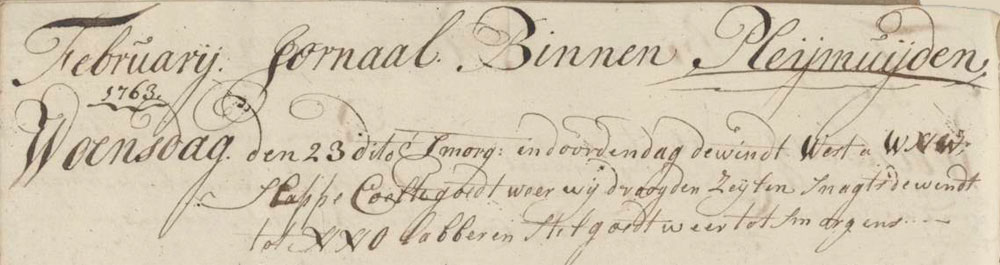 Februarij. Jornaal. Binnen Pleijmuijden
1763.
Woensdag. den 23 dito Smorg: en doordendag dewindt West a WNW.
Slappe Coelte goedt weer wij droogden Zeijlen Snagts dewindt
tot NNO labber en Stil goedt weer tot Smargens